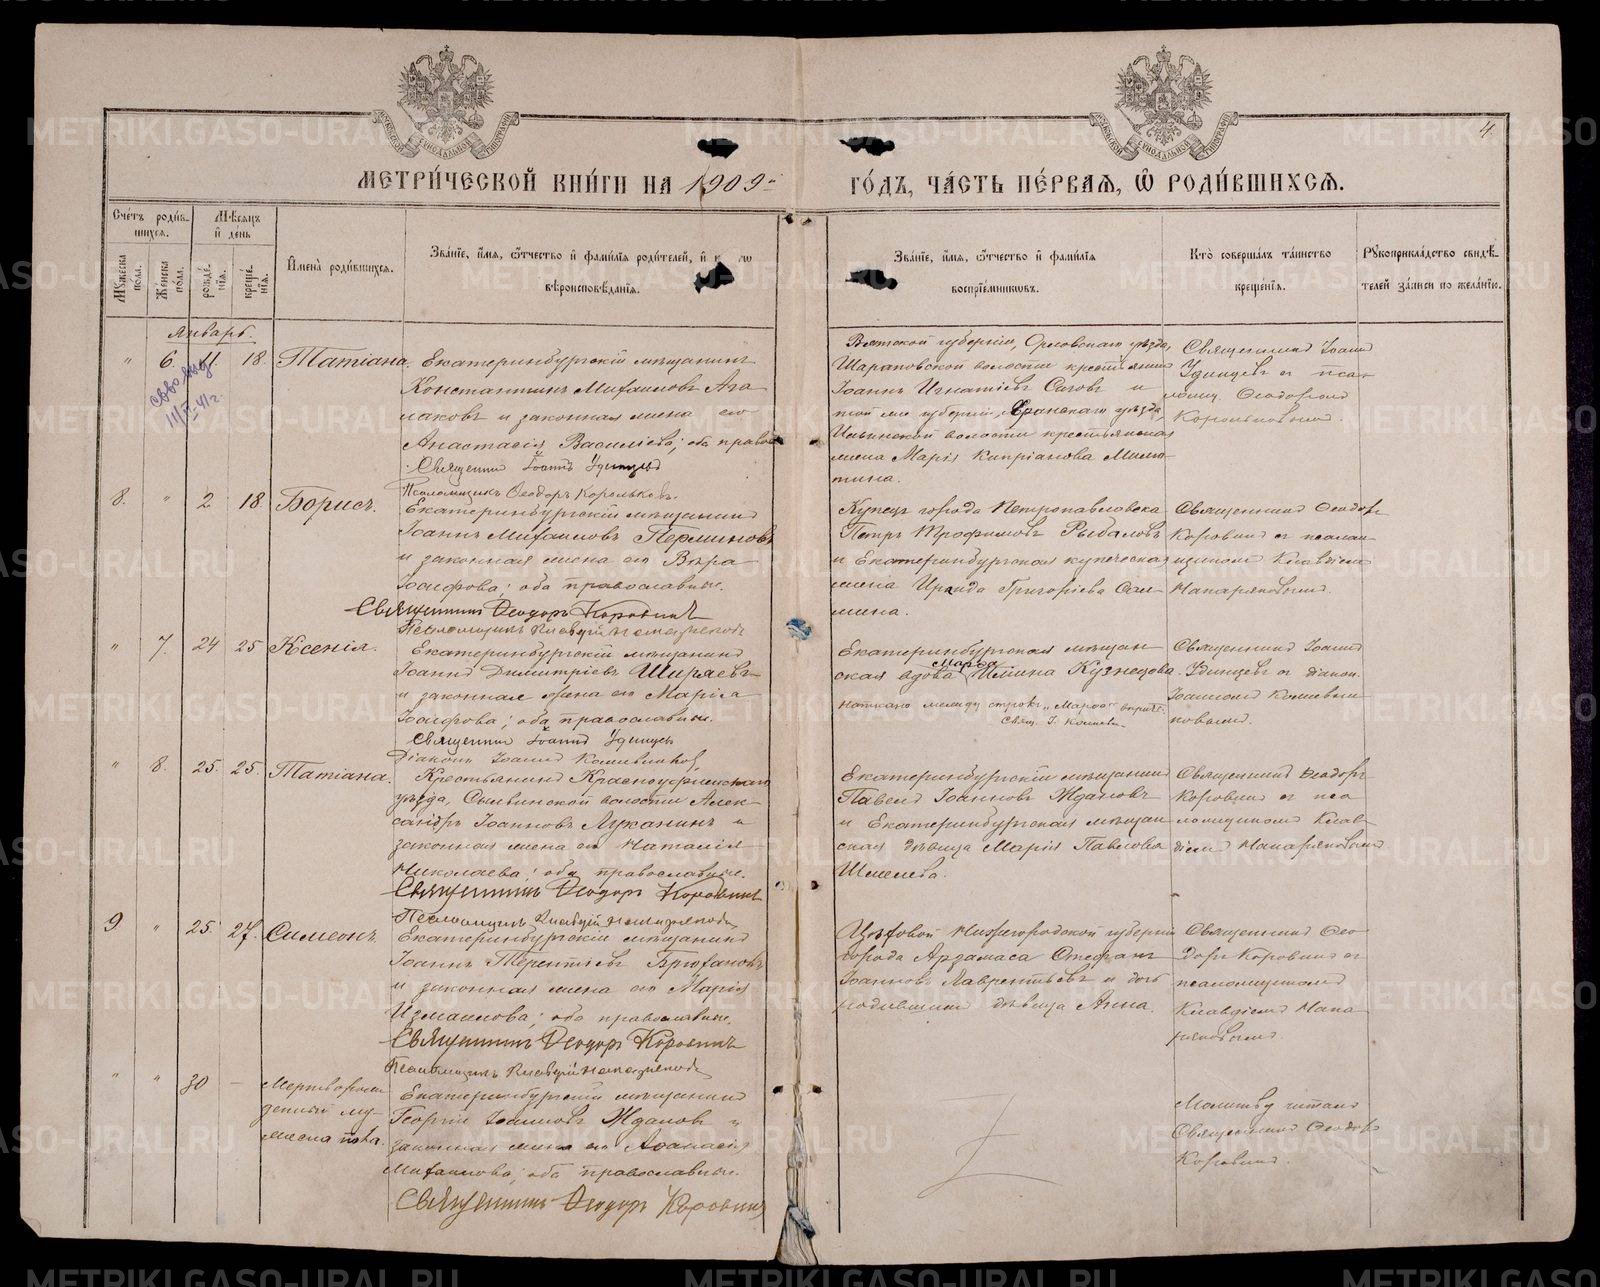 4.
МЕТРИ́ЧЕСКОЙ КНИ́ГИ НА 1909 ГО́ДЪ, ЧА́СТЬ ПЕ́РВАЯ, Ѡ҆ РОДИ́ВШИХСЯ.
Сче́тъ роди́вшихся.
Мѣ́сяцъ и҆ де́нь
Мꙋ́жеска по́ла.
Же́нска по́ла.
рожде́нїя.
креще́нїя.
И҆мена̀ роди́вшихся.
Зва́нїе, и҆́мя, ѻ҆́тчество и҆ фами́лїя роди́телей, и҆
вѣроисповѣ́данїя.
Зва́нїе, и҆́мя, ѻ҆́тчество и҆ фами́лїя
воспрїе́мникѡвъ.
Кто̀ соверша́лъ та́инство
креще́нїя.
Рꙋкоприкла́дство свидѣ́телей за́писи по жела́нїю.
Январь.
" 6. 11 18. Татіана.
Екатеринбургскій мѣщанинъ
Константинъ Михаиловъ
и законная жена его
Анастасія Василіева; оба правосл.
Священникъ Іоаннъ Удинцевъ
Псаломщикъ Ѳеодоръ Корольковъ.
Вятской губерніи, Орловскаго уѣзда,
Шарановской волости крестьянинъ
Іоаннъ Игнатіевъ Сизовъ и
той же губерніи, Яранскаго уѣзда,
Ильинской волости крестьянская
жена Марія Кипріанова
Священникъ Іоаннъ
Удинцевъ съ псаломщ. Ѳеодоромъ
Корольковымъ.
8. " 2 18 Борисъ.
Екатеринбургскій мѣщанинъ
Іоаннъ Михаиловъ Перминовъ
и законная жена его Вѣра
Іосифова; оба православные.
Священникъ Ѳеодоръ Коровинъ
Купецъ города Петропавловска
Петръ Трофимовъ Рыбаловъ
и Екатеринбургская купеческая
жена Ираида Григоріева
Священникъ Ѳеодоръ
Коровинъ съ псаломщикомъ Клавдіемъ
" 7. 24 25 Ксенія.
Екатеринбургскій мѣщанинъ
Іоаннъ Димитріевъ Ширяевъ
и законная жена его Марія
Іосифова; оба православные.
Священникъ Іоаннъ Удинцевъ
Екатеринбургская мѣщанская вдова Марѳа Кузнецова.
Священникъ Іоаннъ
Удинцевъ съ діакон.
Іоанномъ
" 8. 25. 25. Татіана.
Крестьянинъ Красноуфимскаго
уѣзда, Сылвинской волости Александръ Іоанновъ Лужанинъ и
законная жена его Наталія
Николаева; оба православные.
Священникъ Ѳеодоръ Коровинъ
Екатеринбургскій мѣщанинъ
Павелъ Іоанновъ Ждановъ
и Екатеринбургская мѣщанская дѣвица Марія Павлова
Шмелева.
Священникъ Ѳеодоръ
Коровинъ съ псаломщикомъ Клавдіемъ
9 " 25. 27. Симеонъ.
Екатеринбургскій мѣщанинъ
Іоаннъ Терентіевъ Брюхановъ
и законная жена его Марія
Измаилова; оба православные.
Священникъ Ѳеодоръ Коровинъ
Цѣховой Нижегородской губерніи
города Арзамаса Стефанъ
Іоанновъ Лаврентьевъ и дочь
дѣвица Анна.
Священникъ Ѳеодоръ Коровинъ съ
псаломщикомъ
Клавдіемъ
" " 30 — Мертворожденный мужеска пола.
Екатеринбургскій мѣщанинъ
Георгій Іоанновъ Ждановъ и
законная жена его Аѳанасія
Михаилова; оба православные.
Священникъ Ѳеодоръ Коровинъ
Молитву читалъ
Священникъ Ѳеодоръ
Коровинъ.
METRIKI.GASO-URAL.RU